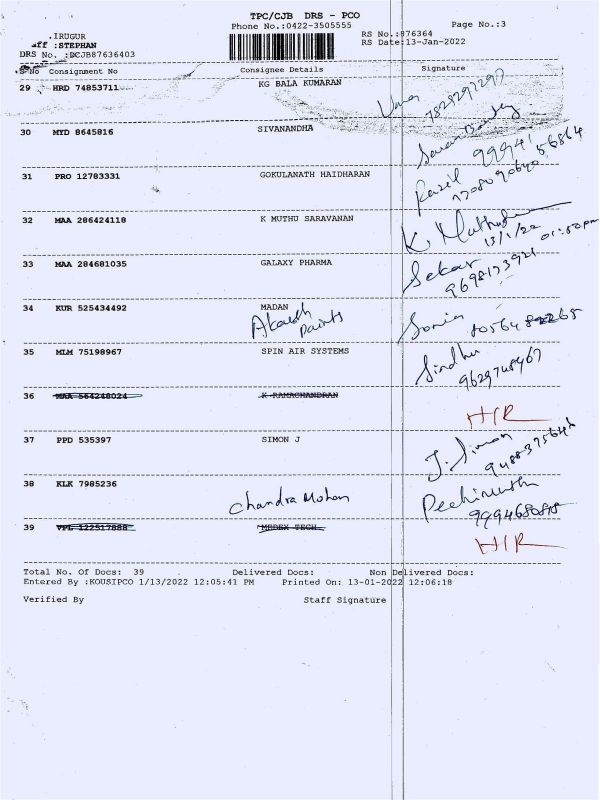 TPC/CJB DRS - PCO
Phone No.:0422-3505555
Page No.:3
.IRUGUR
aff :STEPHAN
DRS No. :DCJB87636403
RS No.:876364
RS Date:13-Jan-2022
S No Consignment No Consignee Details Signature
29 HRD 74853711 KG BALA KUMARAN
30 MYD 8645816 SIVANANDHA
31 PRO 12783331 GOKULANATH HAIDHARAN
32 MAA 286424118 K MUTHU SARAVANAN
13/1/22
33 MAA 284681035 GALAXY PHARMA Sekar
34 KUR 525434492 MADAN
Akash Paints Sonia
35 MLM 75198967 SPIN AIR SYSTEMS Sindhu
36 MAA 564248024 K RAMACHANDRAN
HR
37 PPD 535397 SIMON J J. Simon
38 KLK 7985236
Chandra Mohan
39 VPL 122517888 MEDEX TECH
HR
Total No. Of Docs: 39 Delivered Docs: Non Delivered Docs:
Entered By :KOUSIPCO 1/13/2022 12:05:41 PM Printed On: 13-01-2022 12:06:18
Verified By Staff Signature